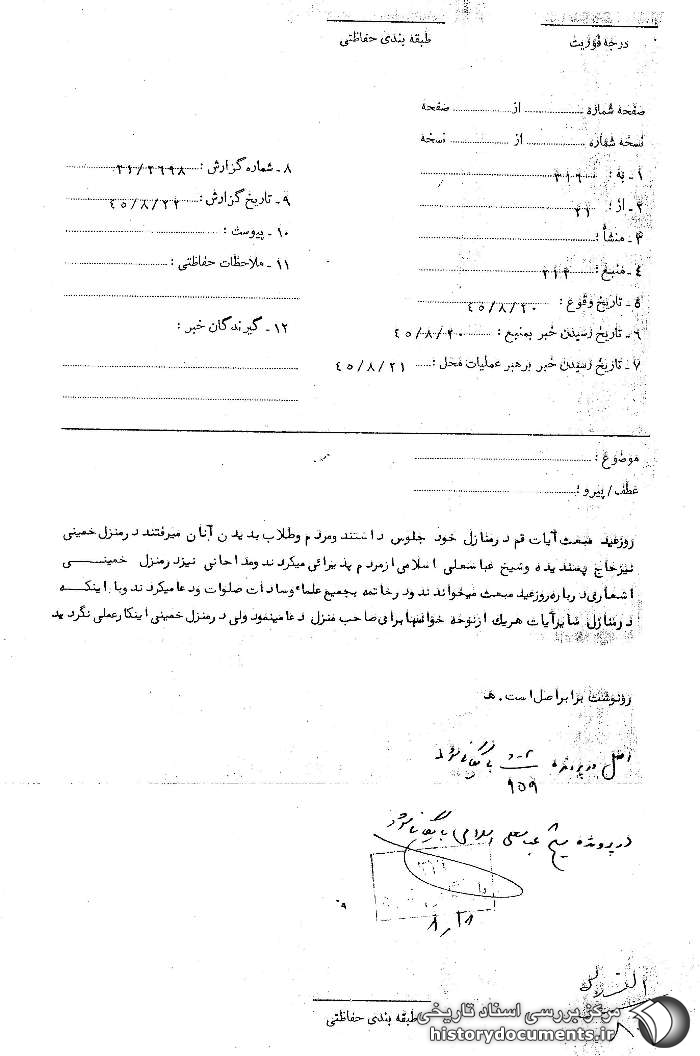 درجه فوریت
طبقه بندی حفاظتی
صفحه شماره از صفحه
نسخه شماره از نسخه
۱ - به : ۳۱۶
۲ - از : ۲۱
۳ - منشأ :
٤ - منبع : ۲۱۲
٥ - تاریخ وقوع : ٤٥/۸/۲۰
٦ - تاریخ رسیدن خبر بمنبع : ٤٥/۸/۲۰
۷ - تاریخ رسیدن خبر برهبر عملیات محل : ٤٥/۸/۲۱
۸ - شماره گزارش : ۲۱/۲٦۹۸
۹ - تاریخ گزارش : ٤٥/۸/۲۲
۱۰ - پیوست :
۱۱ - ملاحظات حفاظتی :
۱۲ - گیرندگان خبر :
موضوع :
عطف / پیرو :
روز عید مبعث آیات قم در منازل خود جلوس داشتند و مردم و طلاب بدیدن آنان میرفتند در منزل خمینی
نیز حاج پسندیده و شیخ عباسعلی اسلامی از مردم پذیرائی میکردند و مداحانی نیز در منزل خمینی
اشعاری درباره روز عید مبعث میخواندند و در خاتمه بجمیع علماء و سادات صلوات و دعا میکردند و با اینکه
در منازل سایر آیات هر یک از نوحه خوانها برای صاحب منزل دعا مینمود ولی در منزل خمینی اینکار عملی نگردید
رونوشت برابر اصل است . هـ
اصل در پرونده بایگانی شود
۹۵۹
در پرونده شیخ عباسعلی اسلامی بایگانی شود
۸/۲۸
طبقه بندی حفاظتی
مرکز بررسی اسناد تاریخی
historydocuments.ir